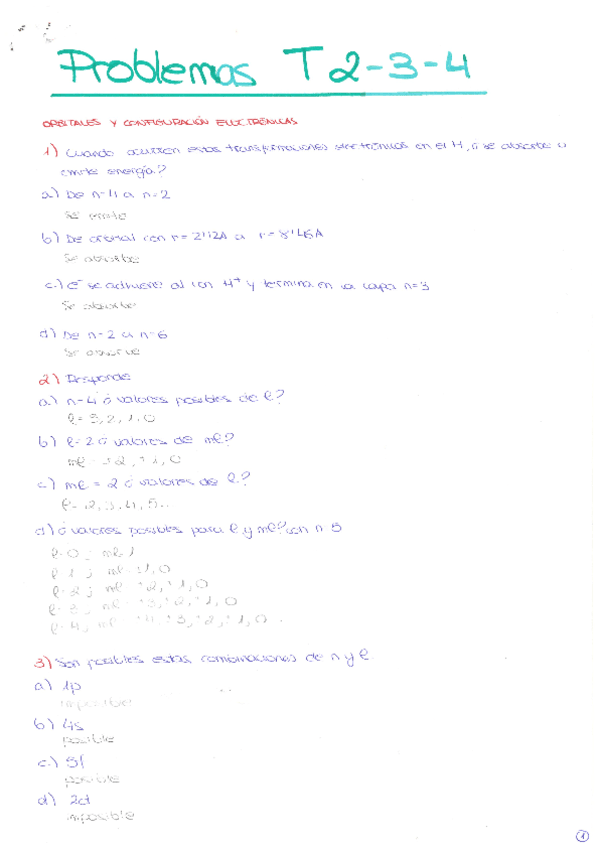 Problemas T 2-3-4
ORBITALES Y CONFIGURACIÓN ELECTRÓNICAS
1) Cuando ocurren estas transformaciones electrónicas en el H, ó se absorbe o
emite energía?
a) De n=4 a n=2
Se emite
b) De orbital con r= 2'12A a r= 8'46A
Se absorbe
c) e⁻ se adhiere al ion H⁺ y termina en la capa n=3
Se absorbe
d) De n=2 a n=6
Se absorve
2) Responde
a) n=4 ó valores posibles de l?
l= 3, 2, 1, 0
b) l=2 ó valores de ml?
ml = ±2, ±1, 0
c) ml = 2 ó valores de l?
l= 2, 3, 4, 5..
d) ó valores posibles para l y ml? con n=5
l=0 ; ml=1
l=1 ; ml=±1, 0
l=2 ; ml=±2, ±1, 0
l=3 ; ml=±3, ±2, ±1, 0
l=4; ml=±4, ±3, ±2, ±1, 0
3) Son posibles estas combinaciones de n y l
a) 1p
imposible
b) 4s
posible
c) 5f
posible
d) 2d
imposible
1